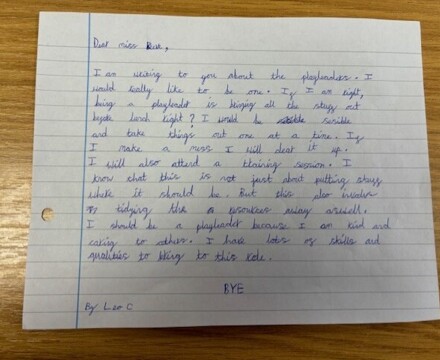 Dear miss
I am writing to you about the playleaders. I
would really like to be one. If I am right,
being a playleader is bringing all the stuff out
before lunch right? I would be sensible
and take things out one at a time. If
I make a mess I will clean it up.
I will also attend a training session. I
know that this is not just about putting stuff
where it should be. But this also involves
tidying the resources away aswell.
I should be a playleader because I am kind and
caring to others. I have lots of skills and
qualities to bring to this role.
BYE
By Leo C